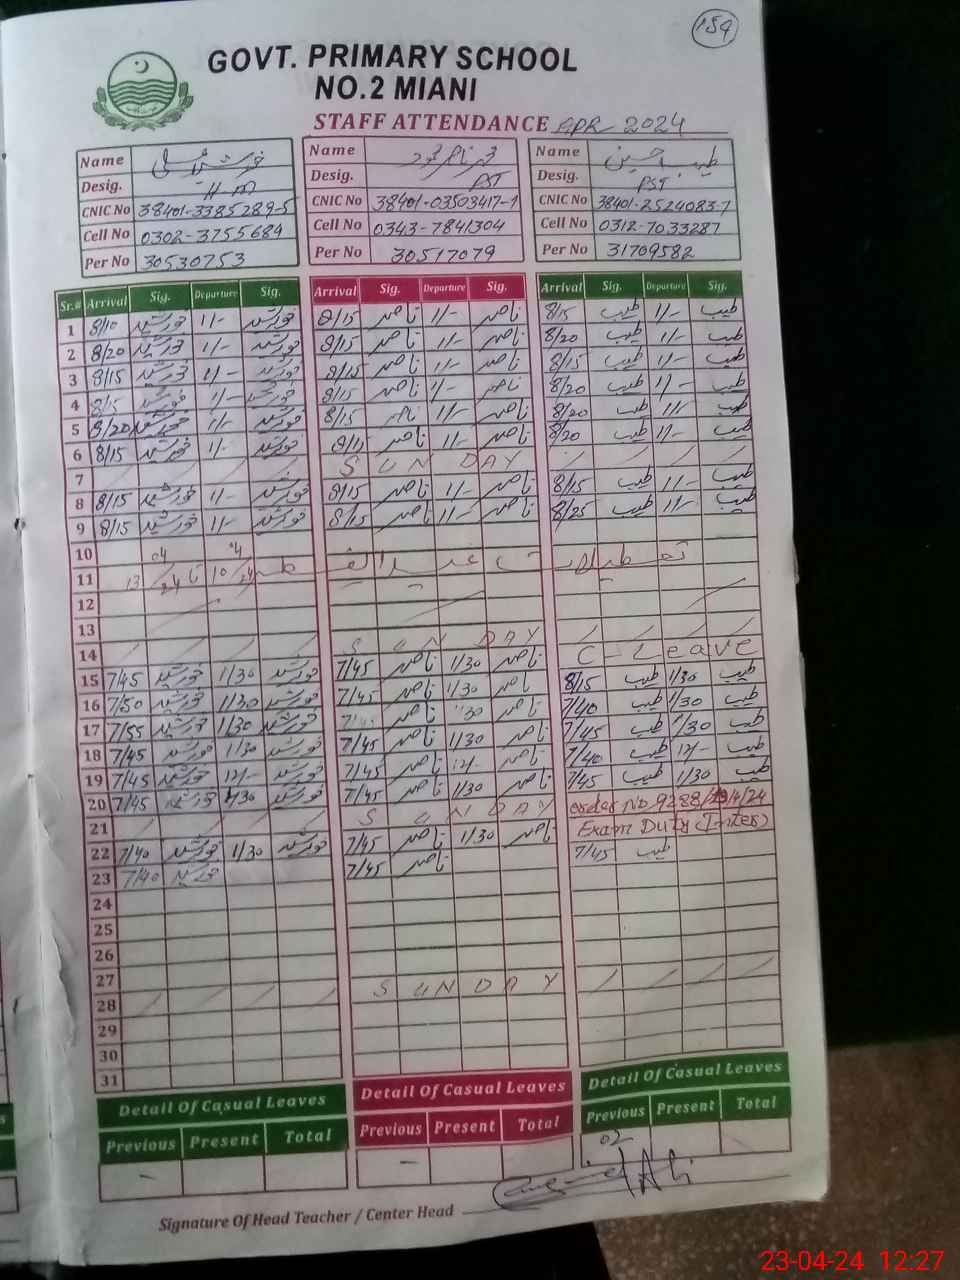 159
GOVT. PRIMARY SCHOOL
NO.2 MIANI
STAFF ATTENDANCE APR 2024
Name خورشید علی Name محمد ناصر محمود Name طیب حسین
Desig. H.M Desig. PST Desig. PST
CNIC No 38401-3385289-5 CNIC No 38401-03503417-1 CNIC No 38401-2524083-7
Cell No 0302-3755684 Cell No 0343-7841304 Cell No 0312-7033287
Per No 30530753 Per No 30517079 Per No 31709582
Sr.# Arrival Sig. Departure Sig. Arrival Sig. Departure Sig. Arrival Sig. Departure Sig.
1 8/10 خورشید 1/- خورشید 8/15 ناصر 1/- ناصر 8/15 طیب 1/- طیب
2 8/20 خورشید 1/- خورشید 8/15 ناصر 1/- ناصر 8/20 طیب 1/- طیب
3 8/15 خورشید 1/- خورشید 8/15 ناصر 1/- ناصر 8/15 طیب 1/- طیب
4 8/15 خورشید 1/- خورشید 8/15 ناصر 1/- ناصر 8/20 طیب 1/- طیب
5 8/20 خورشید 1/- خورشید 8/15 ناصر 1/- ناصر 8/20 طیب 1/- طیب
6 8/15 خورشید 1/- خورشید 8/15 ناصر 1/- ناصر 8/20 طیب 1/- طیب
7 SUNDAY
8 8/15 خورشید 1/- خورشید 8/15 ناصر 1/- ناصر 8/15 طیب 1/- طیب
9 8/15 خورشید 1/- خورشید 8/15 ناصر 1/- ناصر 8/25 طیب 1/- طیب
10
11 تعطیلات عید الفطر 10/04/24 تا 13/04/24
12
13
14 SUNDAY
15 7/45 خورشید 1/30 خورشید 7/45 ناصر 1/30 ناصر C-Leave
16 7/50 خورشید 1/30 خورشید 7/45 ناصر 1/30 ناصر 8/15 طیب 1/30 طیب
17 7/55 خورشید 1/30 خورشید 7/45 ناصر 1/30 ناصر 7/40 طیب 1/30 طیب
18 7/45 خورشید 1/30 خورشید 7/45 ناصر 1/30 ناصر 7/45 طیب 1/30 طیب
19 7/45 خورشید 12/- خورشید 7/45 ناصر 12/- ناصر 7/40 طیب 12/- طیب
20 7/45 خورشید 1/30 خورشید 7/45 ناصر 1/30 ناصر 7/45 طیب 1/30 طیب
21 SUNDAY order No 9288/20/4/24
22 7/40 خورشید 1/30 خورشید 7/45 ناصر 1/30 ناصر Exam Duty (Inter)
23 7/40 خورشید 7/45 ناصر 7/45 طیب
24
25
26
27
28 SUNDAY
29
30
31
Detail Of Casual Leaves Detail Of Casual Leaves Detail Of Casual Leaves
Previous Present Total Previous Present Total Previous Present Total
- - 02
Signature Of Head Teacher / Center Head
23-04-24 12:27